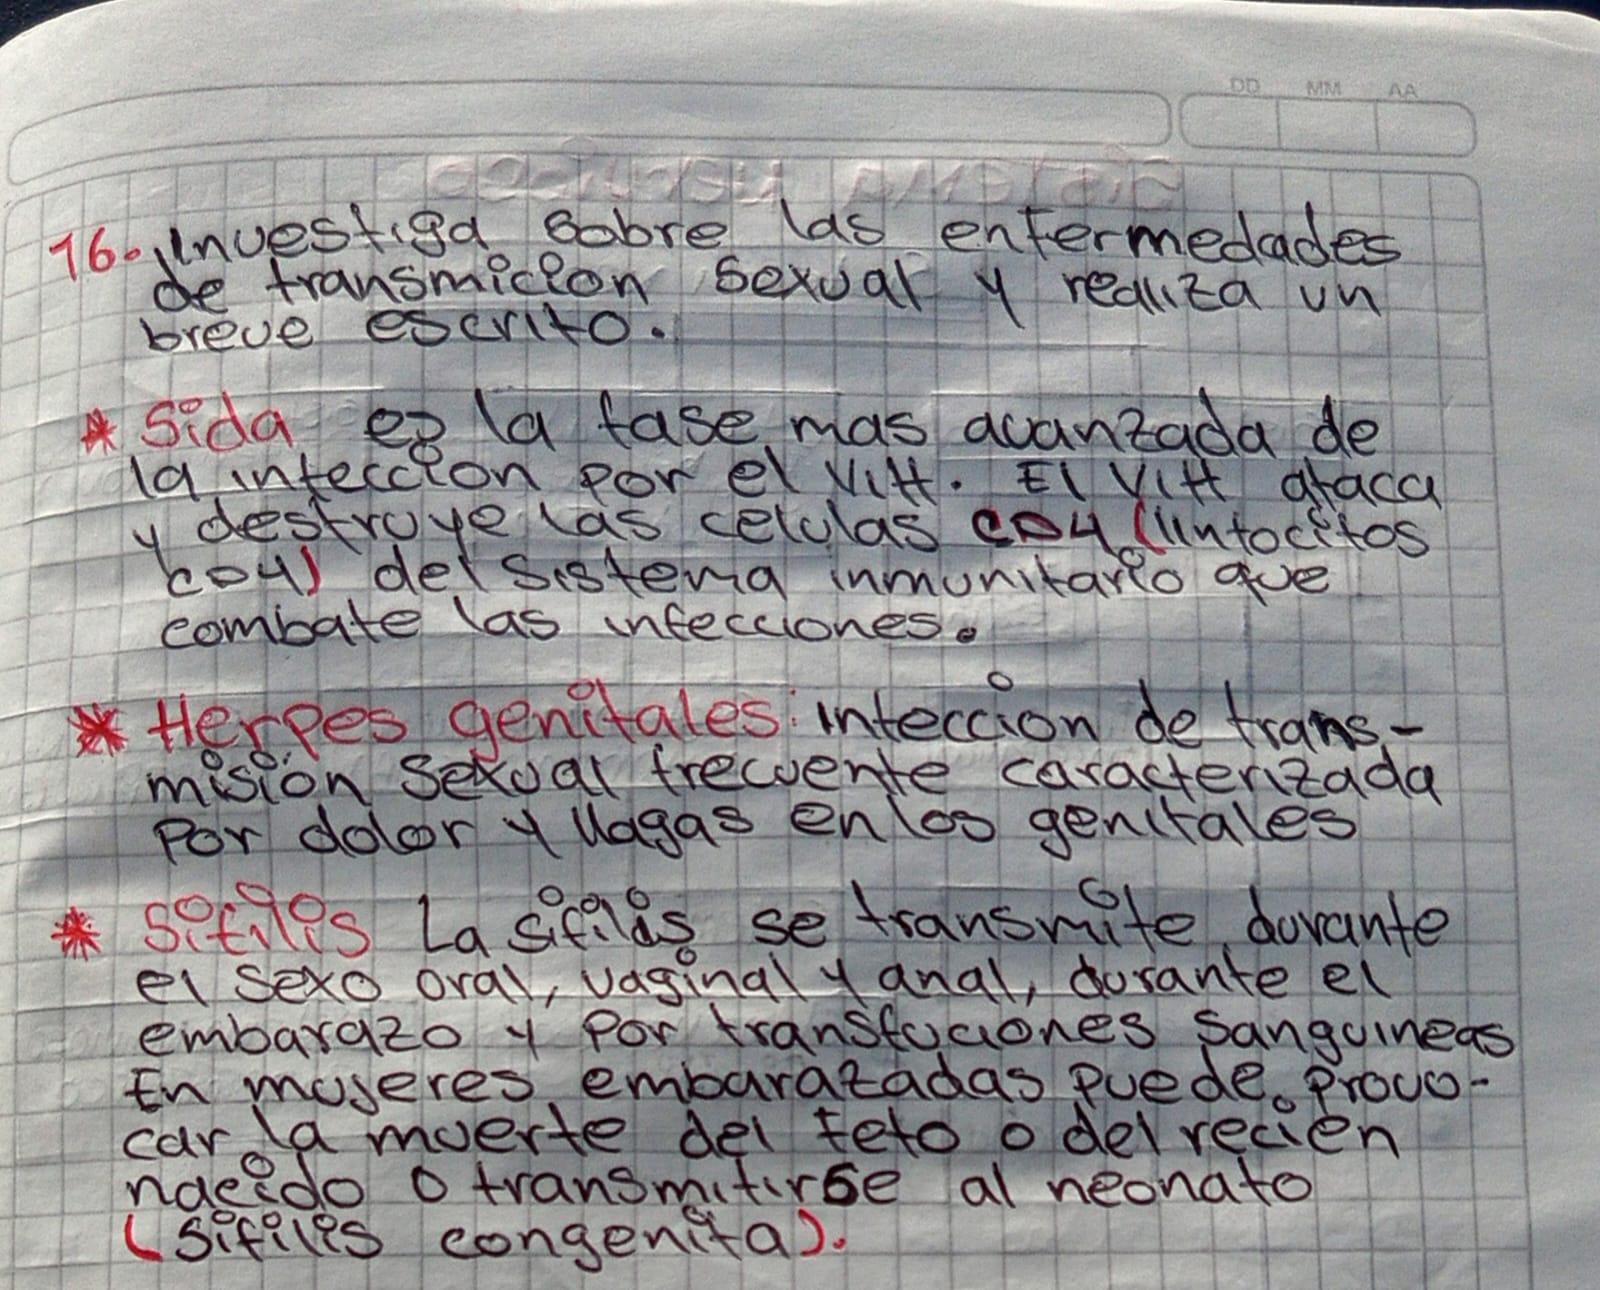 DD MM AA
16. Investiga sobre las enfermedades
de transmicion sexual y realiza un
breve escrito.
* Sida es la fase mas avanzada de
la infeccion por el VIH. El VIH ataca
y destruye las celulas CD4 (linfocitos
CD4) del sistema inmunitario que
combate las infecciones.
* Herpes genitales: infeccion de trans-
misión sexual frecuente caracterizada
por dolor y llagas en los genitales
* Sifilis La sifilis se transmite durante
el sexo oral, vaginal y anal, durante el
embarazo y por transfuciones sanguineas
En mujeres embarazadas puede provo-
car la muerte del feto o del recien
nacido o transmitirse al neonato
(sifilis congenita).